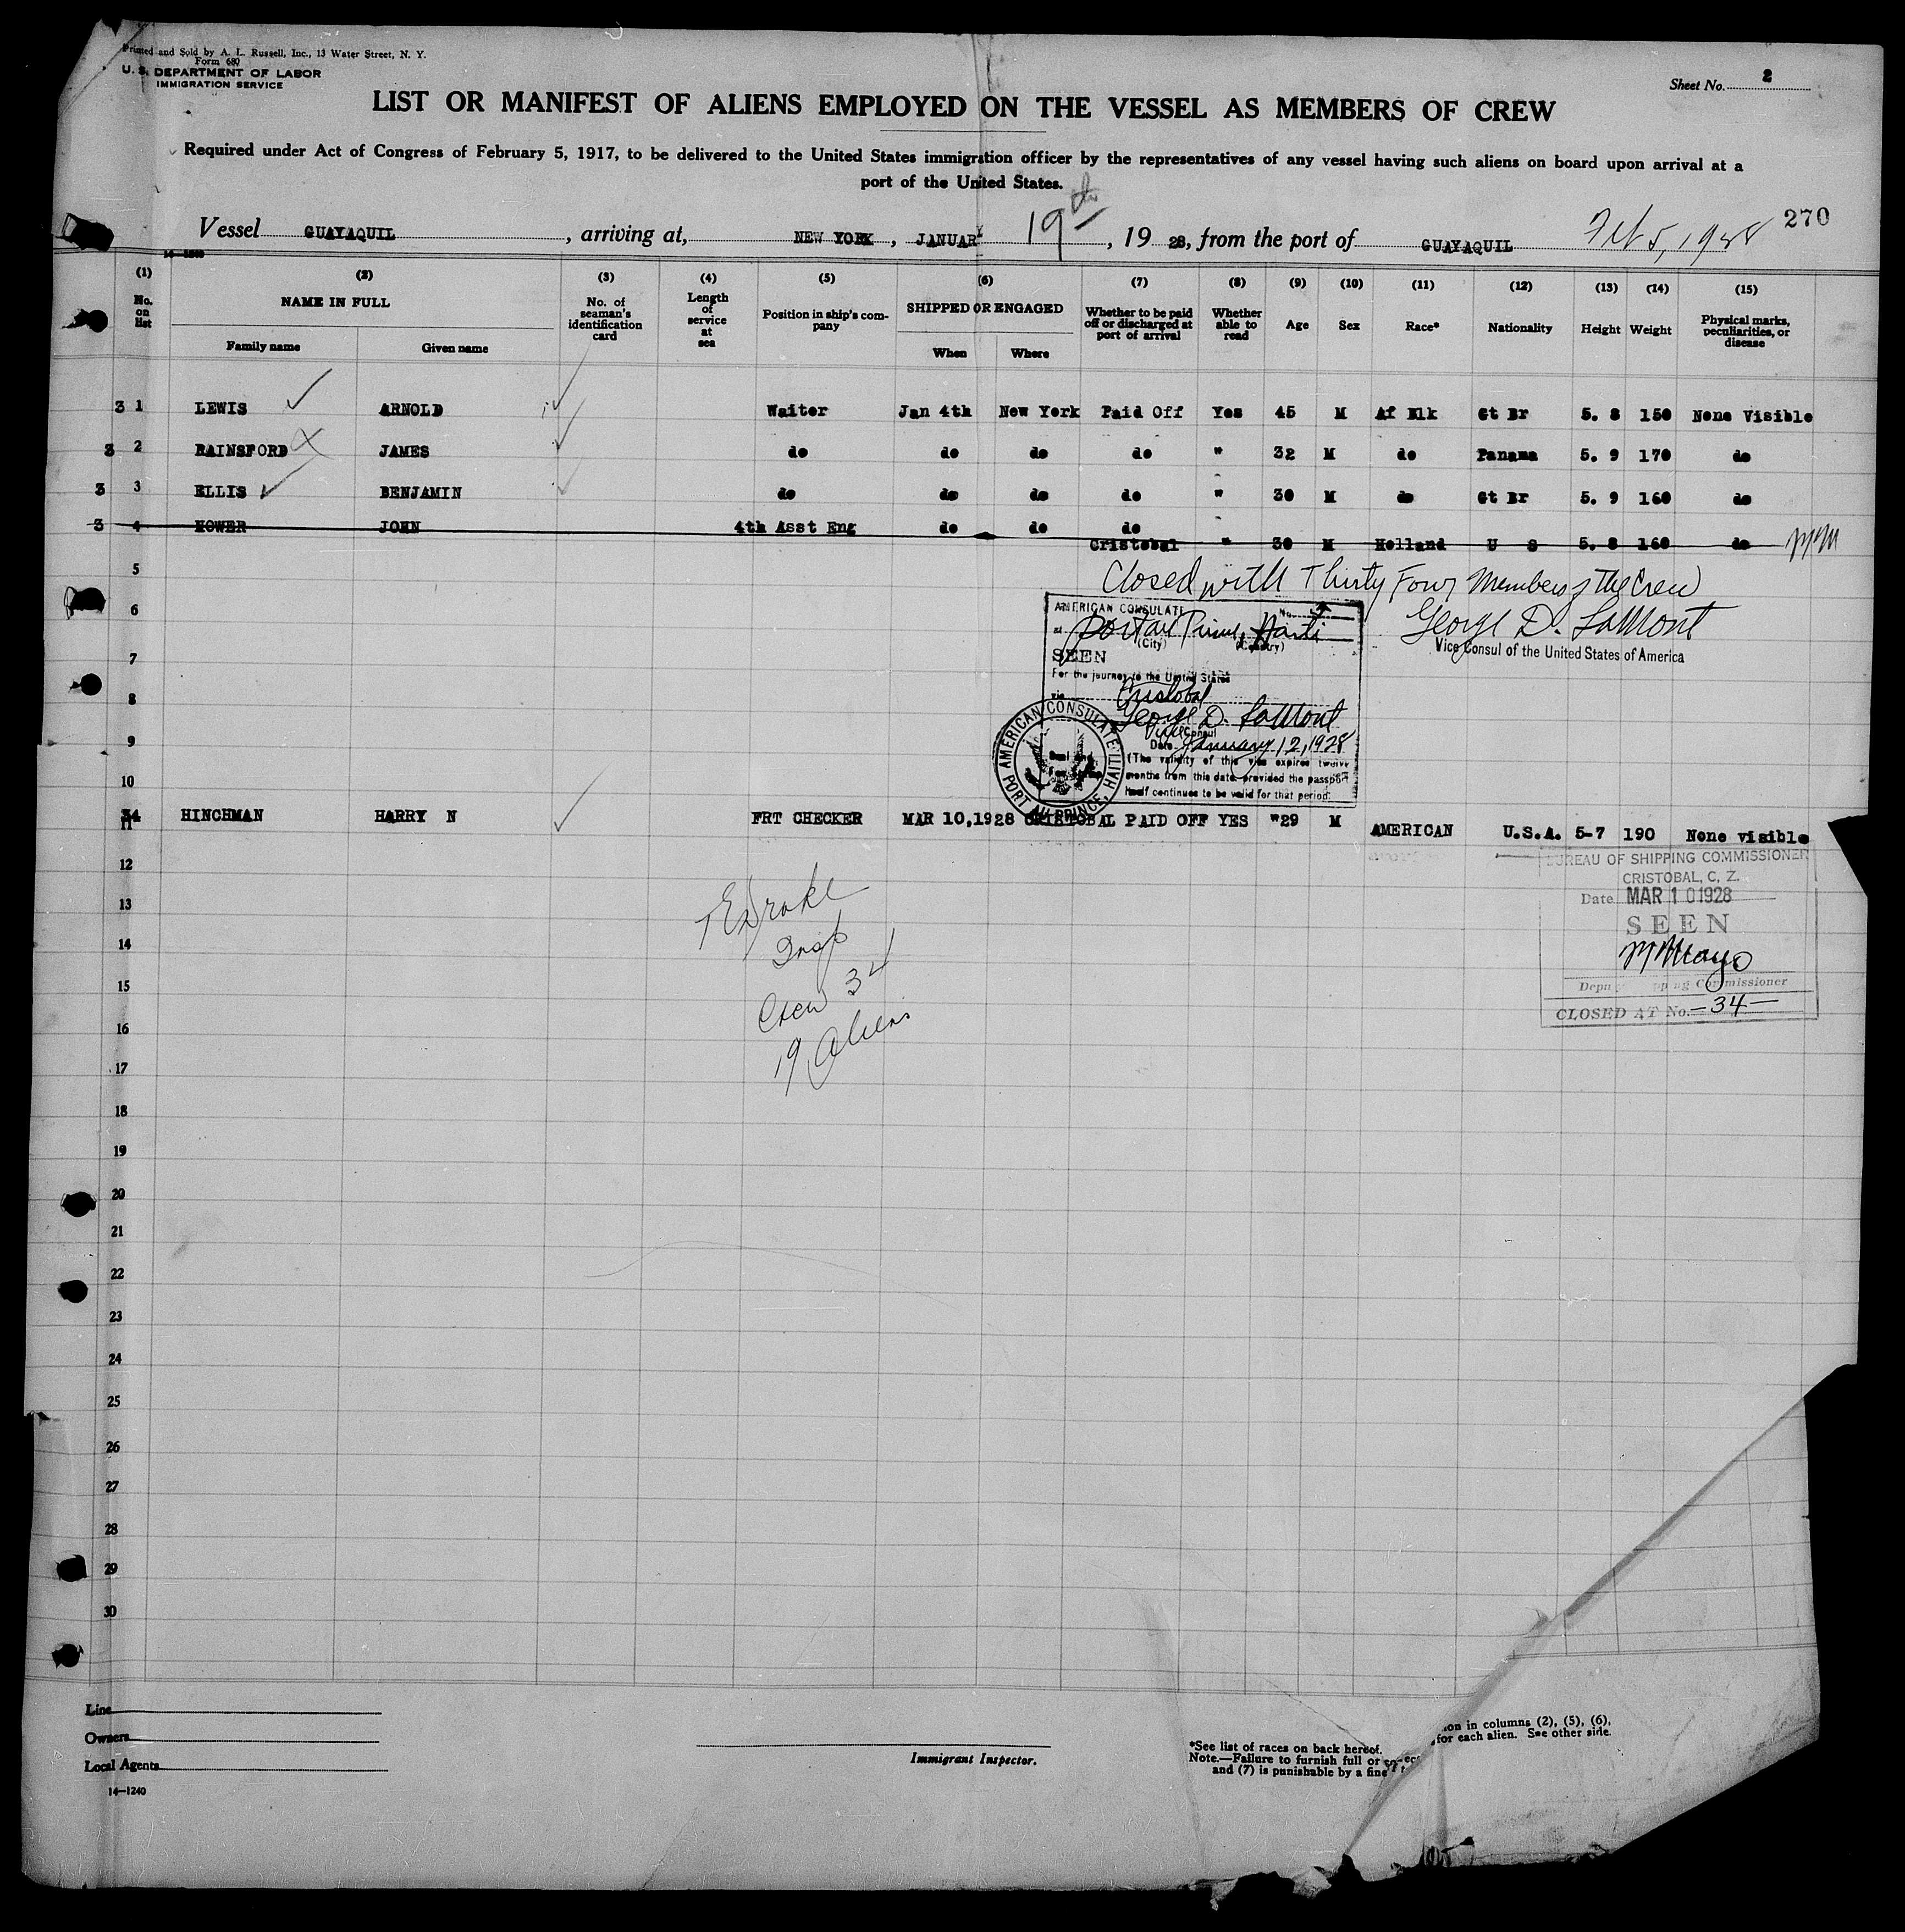 Printed and Sold by A. L. Russell, Inc., 13 Water Street, N. Y.
Form 680
U. S. DEPARTMENT OF LABOR
IMMIGRATION SERVICE
Sheet No. 2
LIST OR MANIFEST OF ALIENS EMPLOYED ON THE VESSEL AS MEMBERS OF CREW
Required under Act of Congress of February 5, 1917, to be delivered to the United States immigration officer by the representatives of any vessel having such aliens on board upon arrival at a
port of the United States.
270
Vessel GUAYAQUIL, arriving at, NEW YORK, JANUARY 19th, 1928, from the port of GUAYAQUIL Feb 5, 1928
(1) (2) (3) (4) (5) (6) (7) (8) (9) (10) (11) (12) (13) (14) (15)
No. on list
NAME IN FULL
Family name Given name
No. of seaman's identification card
Length of service at sea
Position in ship's company
SHIPPED OR ENGAGED
When Where
Whether to be paid off or discharged at port of arrival
Whether able to read
Age Sex Race* Nationality Height Weight
Physical marks, peculiarities, or disease
3 1 LEWIS ARNOLD Waiter Jan 4th New York Paid Off Yes 45 M Af Blk Gt Br 5. 8 150 None Visible
3 2 RAINSFORD JAMES do do do do " 32 M do Panama 5. 9 170 do
3 3 ELLIS BENJAMIN do do do do " 30 M do Gt Br 5. 9 160 do
3 4 HOWER JOHN 4th Asst Eng do do do
Cristobal " 30 M Holland U S 5. 8 160 do
5
Closed with Thirty Four Members of the Crew
6
George D. LaMont
Vice Consul of the United States of America
AMERICAN CONSULATE No.
at Port au Prince, Haiti
(City) (Country)
7
SEEN
For the journey to the United States
8
via Cristobal
George D. LaMont
Vice Consul
9
Date January 12, 1928
(The validity of this visa expires twelve
months from this date provided the passport
itself continues to be valid for that period.
AMERICAN CONSULATE PORT AU PRINCE, HAITI
10
34
11 HINCHMAN HARRY N FRT CHECKER MAR 10,1928 CRISTOBAL PAID OFF YES "29 M AMERICAN U.S.A. 5-7 190 None visible
12
BUREAU OF SHIPPING COMMISSIONER
CRISTOBAL, C. Z.
Date MAR 10 1928
SEEN
Deputy Shipping Commissioner
CLOSED AT No. —34—
13
TE Drake
14
Insp
15
Crew 34
16
19 Aliens
17
18
19
20
21
22
23
24
25
26
27
28
29
30
Line
Owners
Local Agents
14—1240
Immigrant Inspector.
*See list of races on back hereof.
Note.—Failure to furnish full or
and (7) is punishable by a fine
ion in columns (2), (5), (6),
for each alien. See other side.